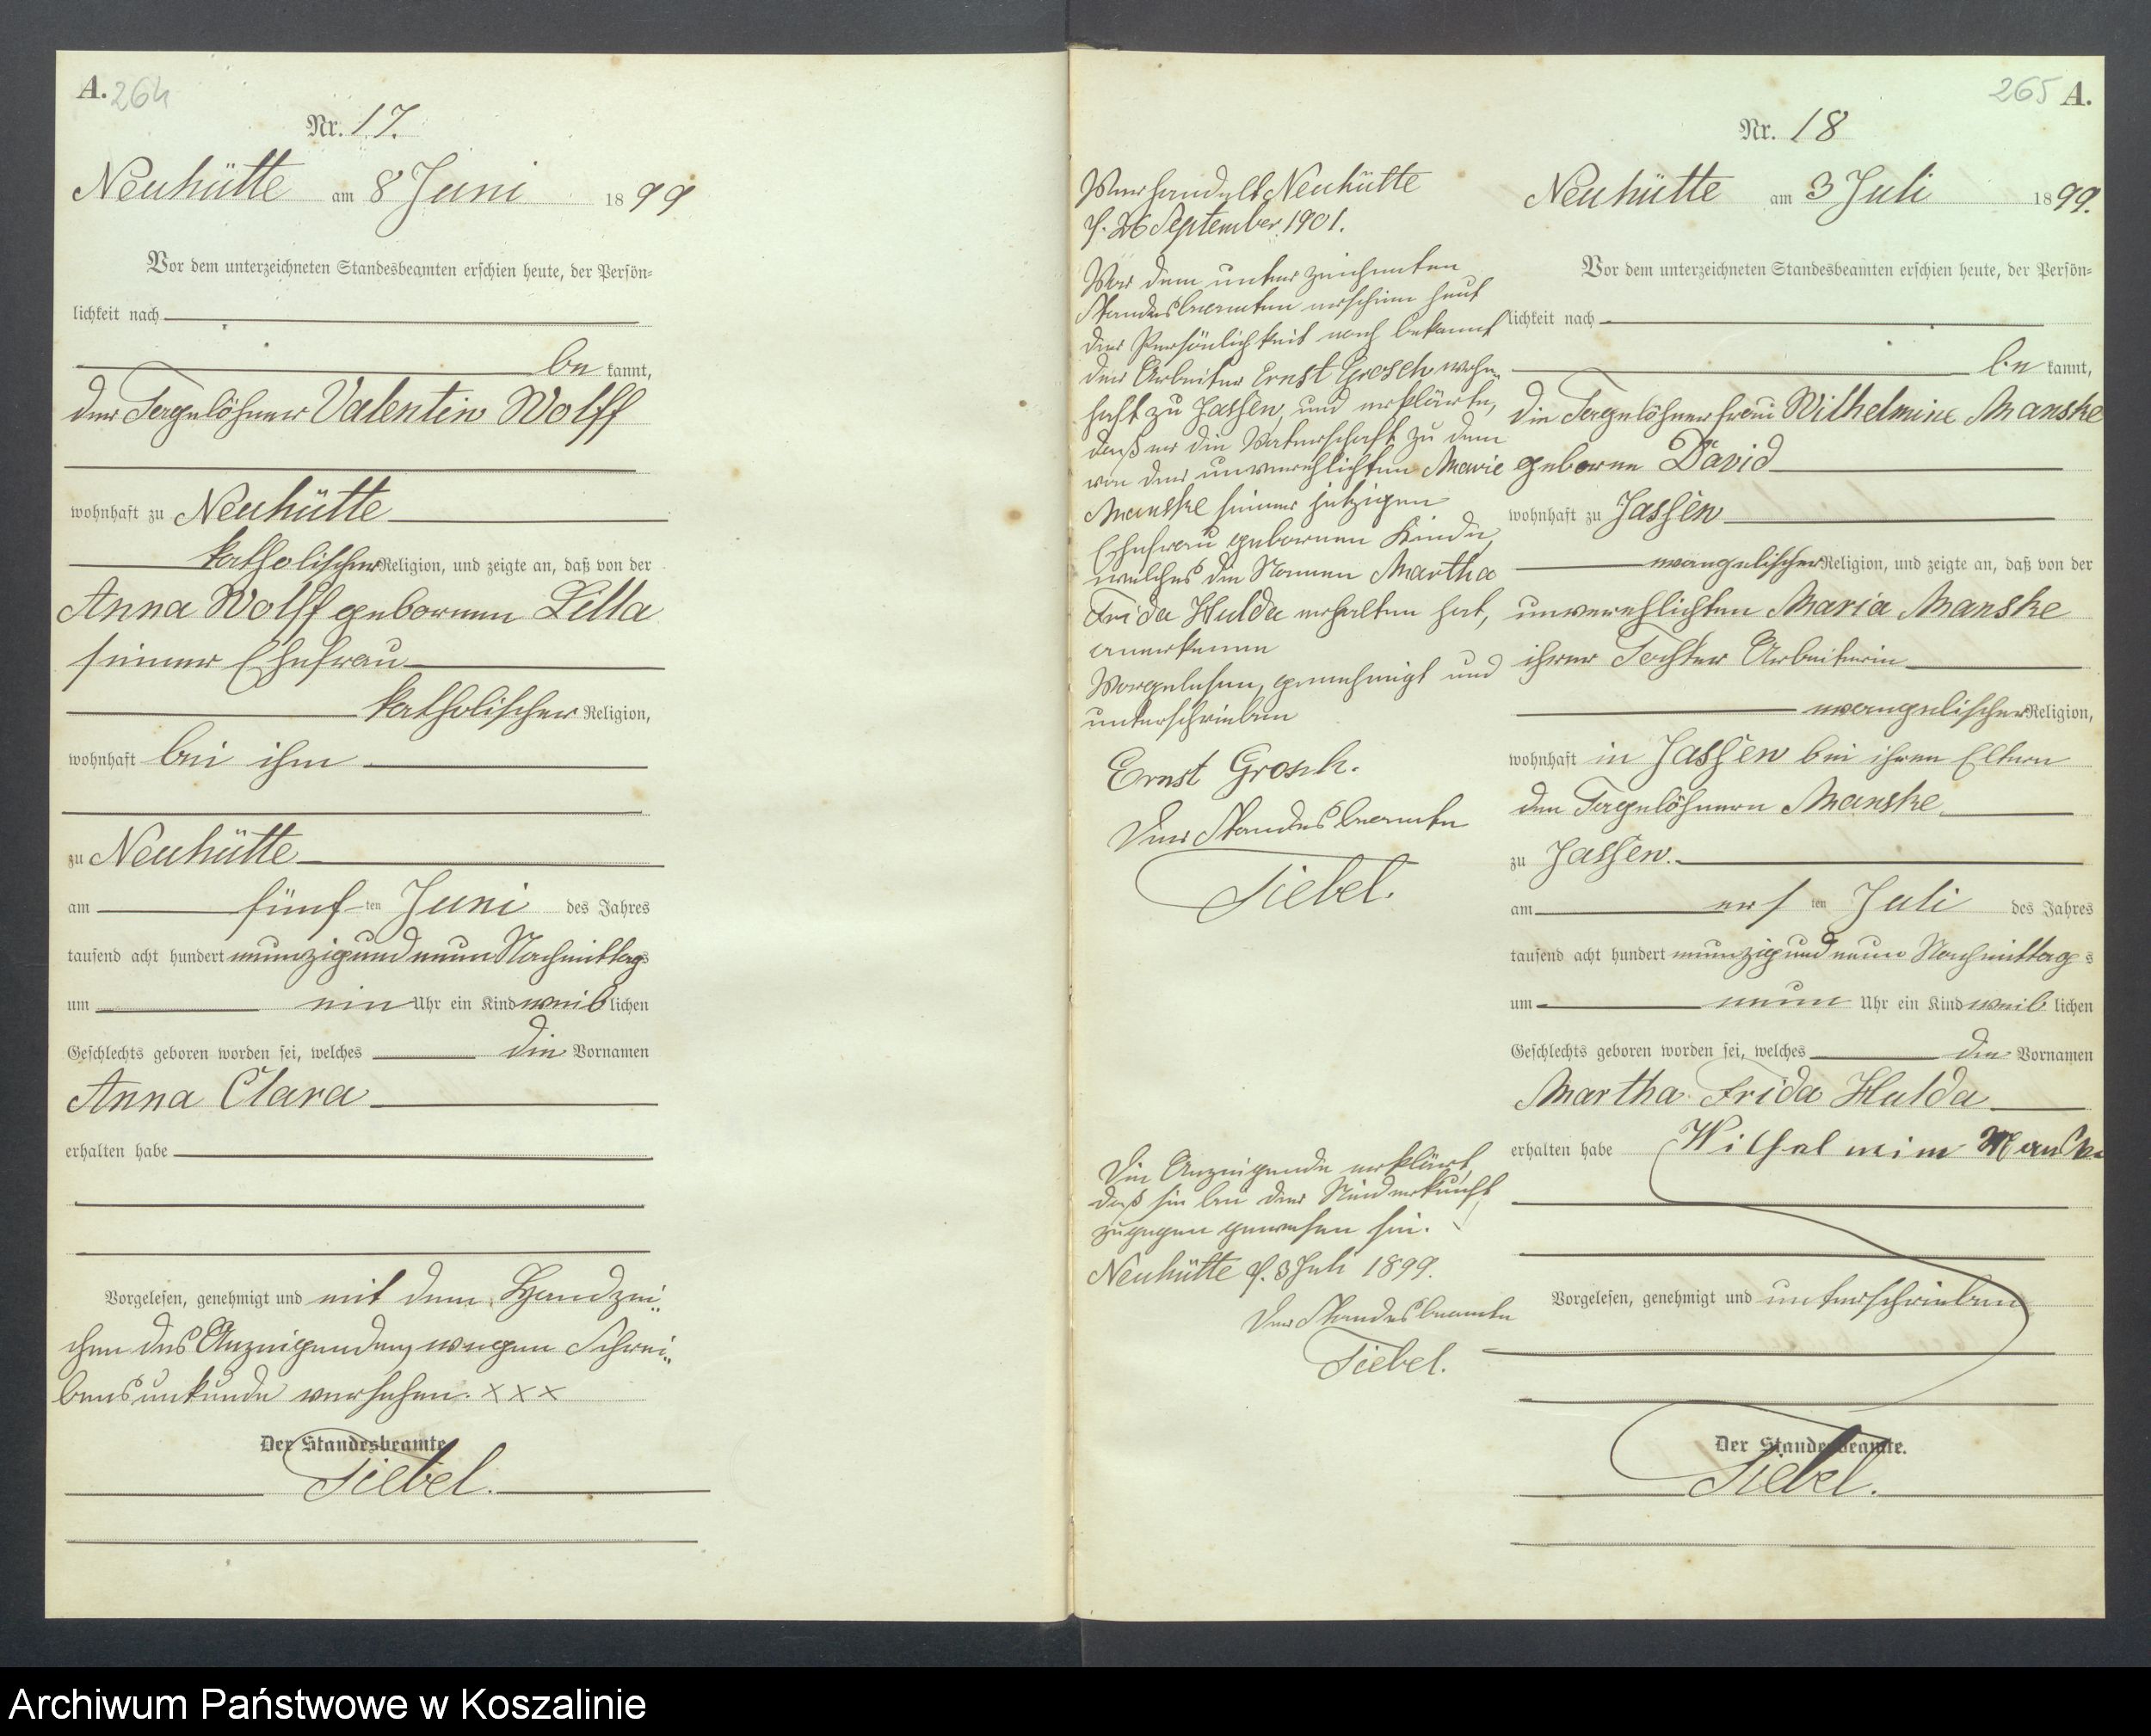 A. 264
Nr. 17.
Neuhütte am 8 Juni 1899
Vor dem unterzeichneten Standesbeamten erschien heute, der Persön=
lichkeit nach
be kannt,
der Tagelöhner Valentin Wolff
wohnhaft zu Neuhütte
katholischer Religion, und zeigte an, daß von der
Anna Wolff geborenen Lilla
seiner Ehefrau
katholischer Religion,
wohnhaft bei ihm
zu Neuhütte
am fünf ten Juni des Jahres
tausend acht hundert neunzig und neun Nachmittags
um ein Uhr ein Kind weib lichen
Geschlechts geboren worden sei, welches die Vornamen
Anna Clara
erhalten habe
Vorgelesen, genehmigt und mit dem Handzei=
chen des Anzeigenden wegen Schrei=
bensunkunde versehen. XXX
Der Standesbeamte.
Tiebel.
265 A.
Nr. 18
Neuhütte am 3 Juli 1899.
Vor dem unterzeichneten Standesbeamten erschien heute, der Persön=
lichkeit nach
be kannt,
die Tagelöhnerfrau Wilhelmine Manske
geborene David
wohnhaft zu Jassen
evangelischer Religion, und zeigte an, daß von der
unverehlichten Maria Manske
ihrer Tochter Arbeiterin
evangelischer Religion,
wohnhaft in Jassen bei ihren Eltern
den Tagelöhnern Manske
zu Jassen.
am ers ten Juli des Jahres
tausend acht hundert neunzig und neun Nachmittag s
um neun Uhr ein Kind weib lichen
Geschlechts geboren worden sei, welches die Vornamen
Martha Frida Hulda
erhalten habe Wilhelmine Manske
Vorgelesen, genehmigt und unterschrieben
Der Standesbeamte.
Tiebel.
Verhandelt Neuhütte
d. 26 September 1901.
Vor dem unterzeichneten
Standesbeamten erschien heut
der Persönlichkeit nach bekannt
der Arbeiter Ernst Grosch wohn=
haft zu Jassen, und erklärte,
daß er die Vaterschaft zu dem
von der unverehlichten Marie
Manske seiner jetzigen
Ehefrau geborenen Kinde,
welches die Namen Martha
Frida Hulda erhalten hat,
anerkenne
Vorgelesen, genehmigt und
unterschrieben
Ernst Grosch.
Der Standesbeamte
Tiebel.
Die Anzeigende erklärt,
daß sie bei der Niederkunft
zugegen gewesen sei.
Neuhütte d. 3 Juli 1899.
Der Standesbeamte
Tiebel.
Archiwum Państwowe w Koszalinie